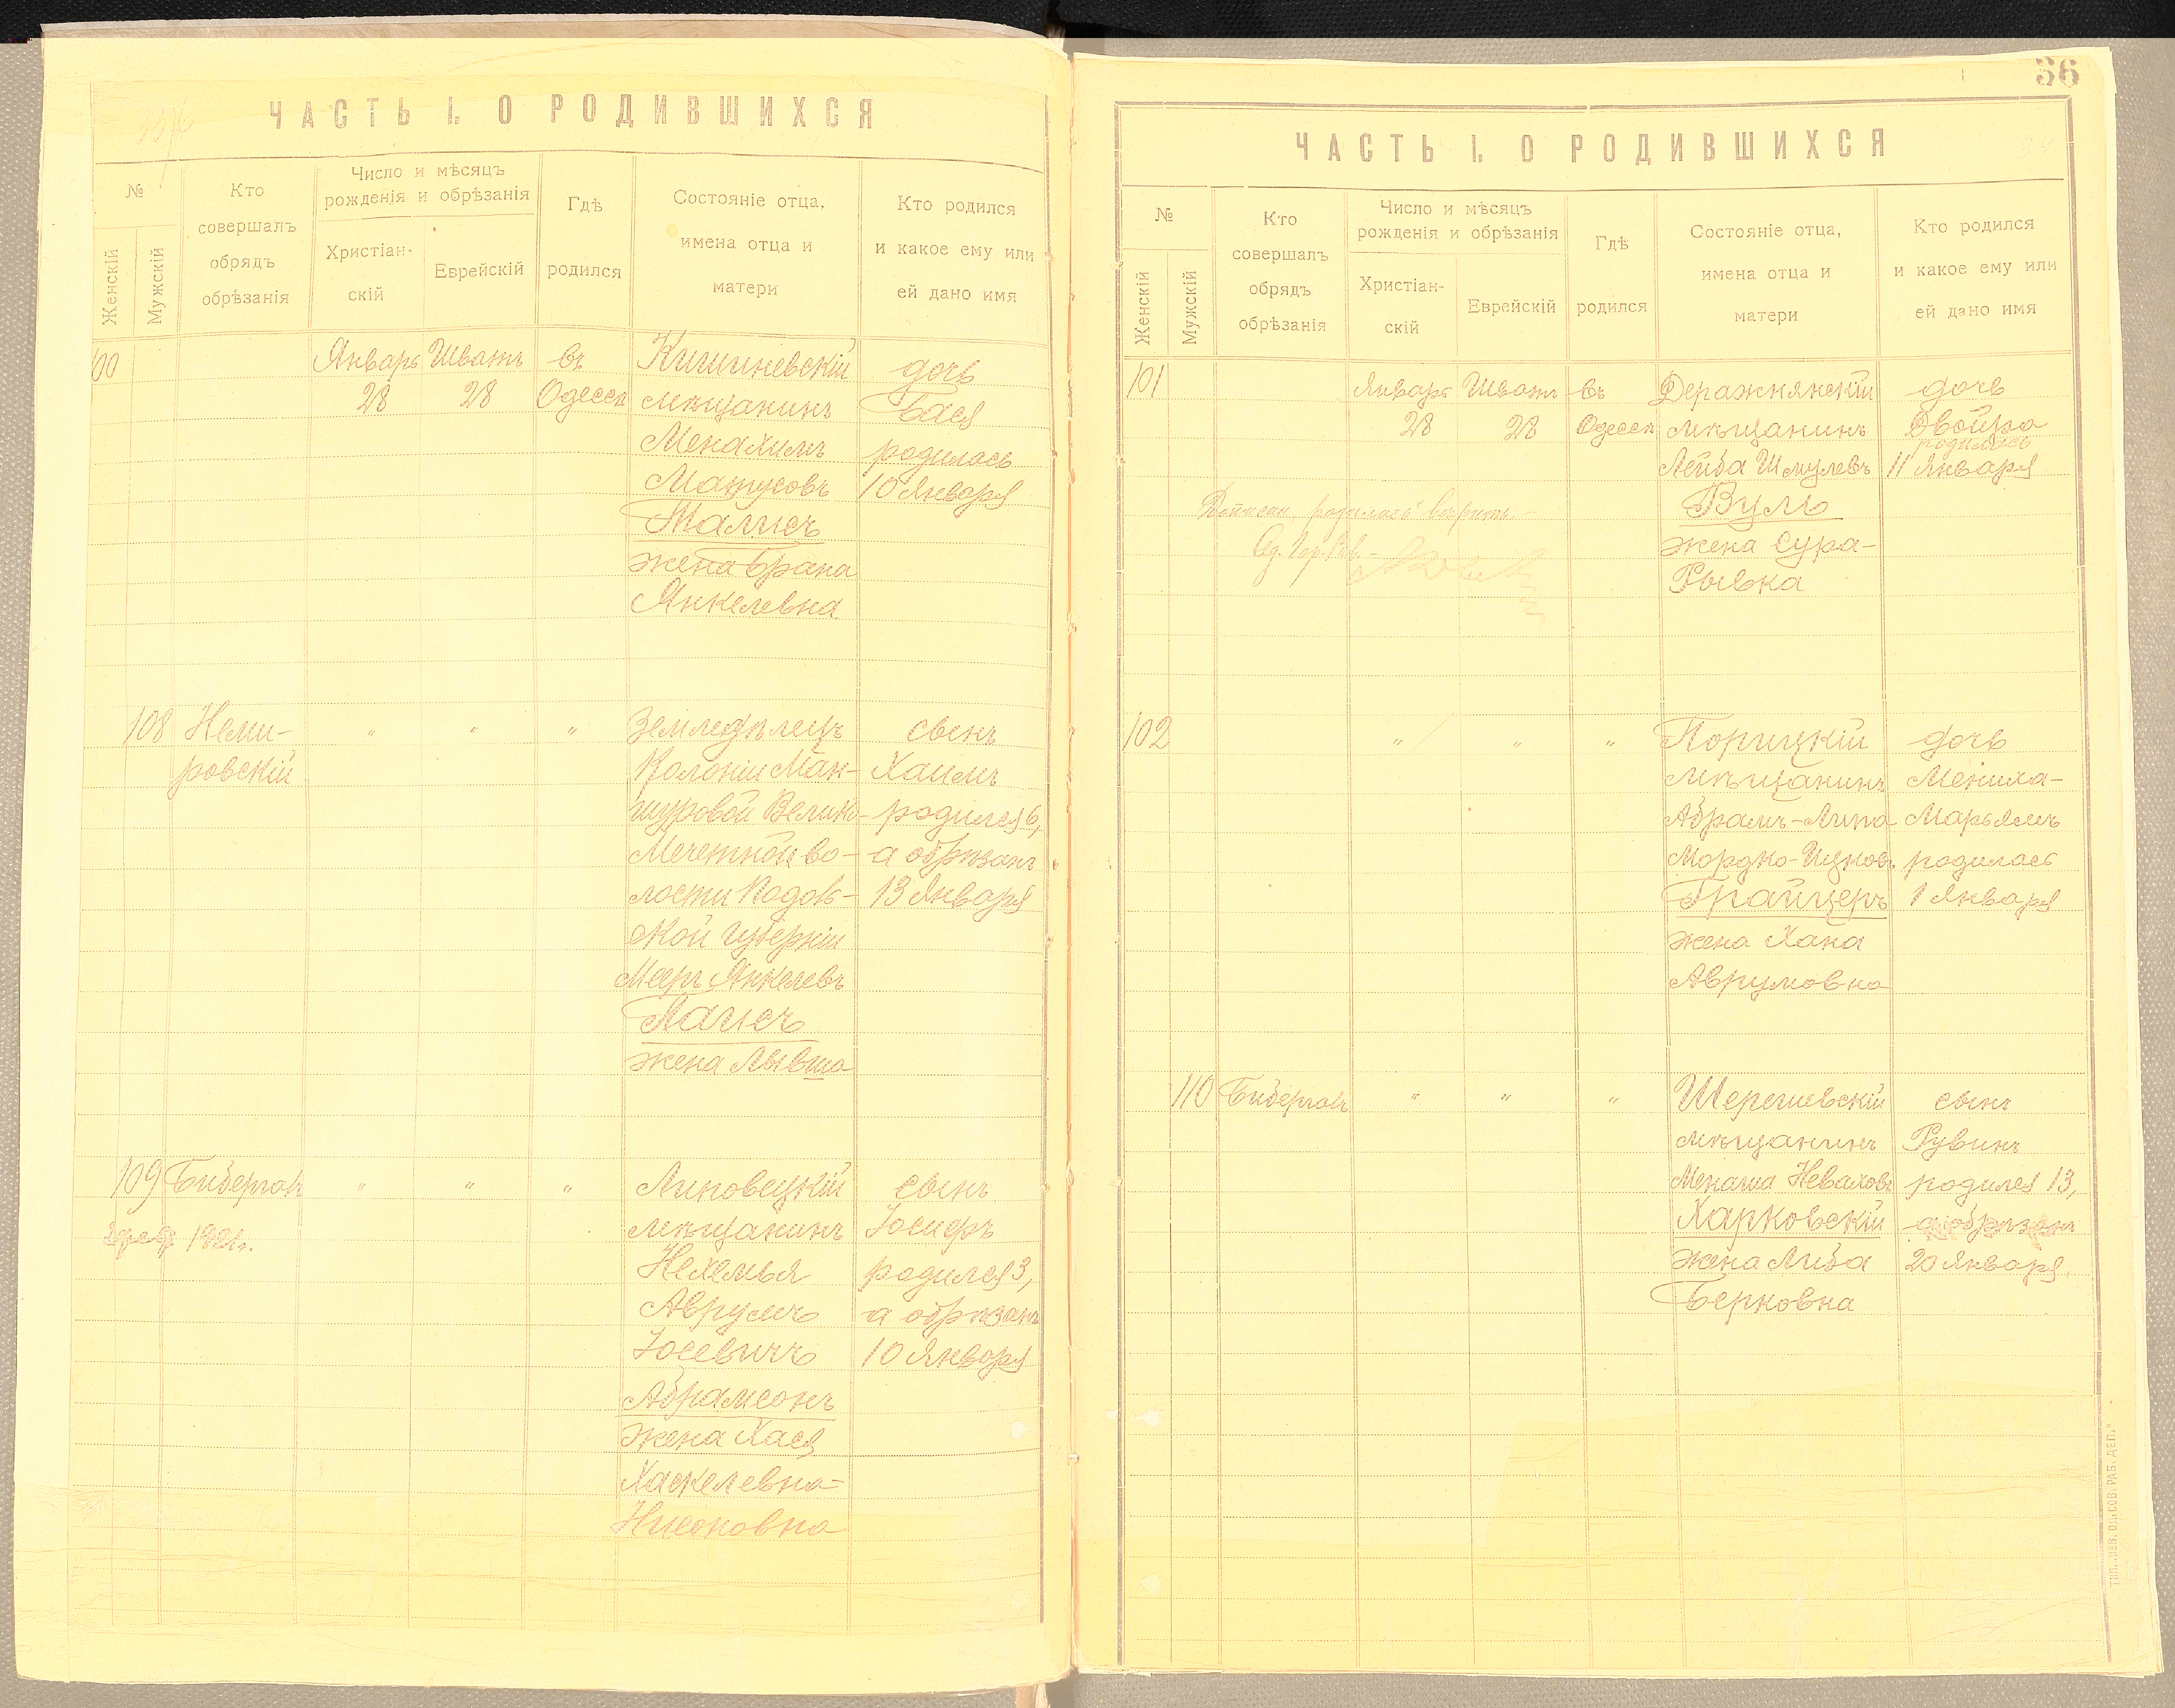 ЧАСТЬ I. О РОДИВШИХСЯ
№
Женскій
Мужскій
Кто
совершалъ
обрядъ
обрѣзанія
Число и мѣсяцъ
рожденія и обрѣзанія
Христіан-
скій
Еврейскій
Гдѣ
родился
Состояніе отца,
имена отца и
матери
Кто родился
и какое ему или
ей дано имя
100
Январь
28
Шватъ
28
въ
Одессѣ
Кишиневскій
мѣщанинъ
Менахимъ
Жена Брана
Янкелевна
дочь
Бася
родилась
10 Января
108
Неми-
ровскій
"
"
"
Земледѣлецъ
Колоніи Ман-
журовой Велико-
Мечетной во-
лости Подоль-
ской Губерніи
Мееръ Янкелевъ
жена
сынъ
Хаимъ
родился 6,
а обрѣзанъ
13 Января
109
"
"
"
Липовецкій
мѣщанинъ
Нехемья
Аврумъ
Іосевичъ
Абрамсонъ
жена Хася
Хаскелевна
сынъ
Іосифъ
родился 3,
а обрѣзанъ
10 Января
1921г.
36
ЧАСТЬ I. О РОДИВШИХСЯ
№
Женскій
Мужскій
Кто
совершалъ
обрядъ
обрѣзанія
Число и мѣсяцъ
рожденія и обрѣзанія
Христіан-
скій
Еврейскій
Гдѣ
родился
Состояніе отца,
имена отца и
матери
Кто родился
и какое ему или
ей дано имя
101
Январь
28
Шватъ
28
въ
Одессѣ
Деражнянскій
мѣщанинъ
Лейба Шмулевъ
Вуль
жена Сура-
Рывка
дочь
Двойра
родилась
11 Января
102
"
"
"
Порицкій
мѣщанинъ
Абрамъ-Липа
Мордко-Ицковъ
Грайцеръ
жена Хана
Аврумовна
дочь
Мениха-
Марьямъ
родилась
1 Января
110
"
"
"
Шерешевскій
мѣщанинъ
Менаша Неваховъ
Харковскій
жена Либа
Берковна
сынъ
Рувинъ
родился 13,
а обрѣзанъ
20 Января